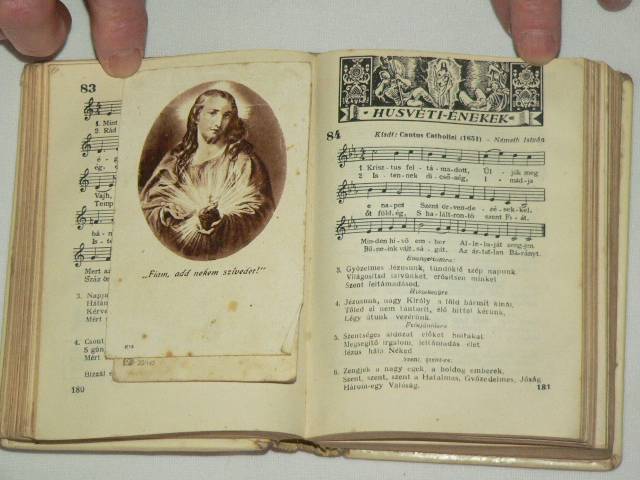 83
1. Mint
2. Rád
Vajh,
Temp
Mert az
Száz ör
3. Napju
Hátán
Kérve
Mért
4. Csont
S gún
Mért
Bizzál e
180
„Fiam, add nekem szívedet!"
HUSVÉTI-ÉNEKEK
84 Kisdi: Cantus Catholici (1651) - Németh István
1 Krisz-tus fel-tá-ma-dott, Új-juk meg
2 Is-ten-nek di-cső-ség, I-mád-ja
e napot Szent ör-ven-de-zé-sek-kel,
őt föld, ég, S ha-lált-ron-tó szent Fi-át.
Min-den hí-vő em-ber Al-le-lu-ját zeng-jen.
Bű-ne-ink vált-sá-gát, Az ár-tat-lan Bá-rányt.
Evangéliumra:
3. Győzelmes Jézusunk, tündöklő szép napunk
Világosítsd szívünket, erősítsen minket
Szent feltámadásod.
4. Jézusunk, nagy Király a föld bármit kínál,
Tőled el nem tántorít, élő hittel kérünk,
Légy útunk vezérünk.
Felajánlásra
5. Szentséges áldozat előket holtakat
Megsegítő irgalom, feltámadás élet
Jézus hála Néked
6. Zengjék a nagy egek, a boldog emberek,
Szent, szent, szent a Hatalmas, Győzedelmes, Jóság
Három-egy Valóság.
181